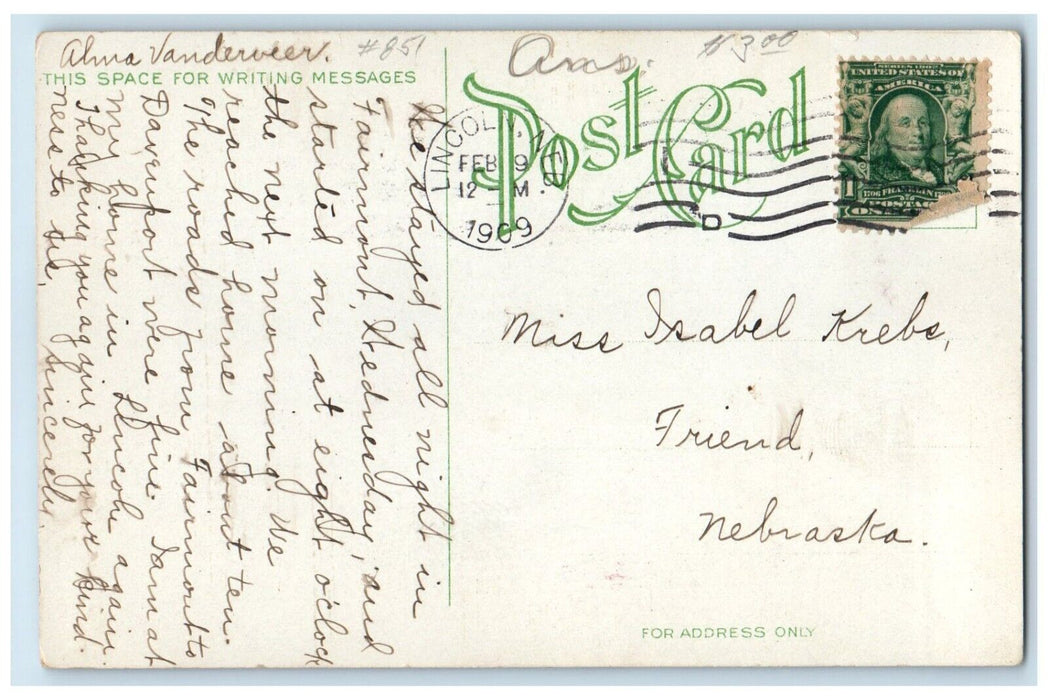 Alma Vanderveer.
#851
Ans.
$3.00
THIS SPACE FOR WRITING MESSAGES
Post Card
LINCOLN, NEB.
FEB 9
12 M
1909
D
SERIES 1902
UNITED STATES OF
AMERICA
1706 FRANKLIN
POSTAG
ONE
1
We stayed all night in
Fairmont, Wednesday, and
started on at eight o'clock
the next morning. We
reached home about ten.
The roads from Fairmont to
Davenport were fine. I am at
my home in Lincoln again.
Thanking you again for your kind.
ness to us,
Sincerely,
Miss Isabel Krebs,
Friend,
Nebraska.
FOR ADDRESS ONLY